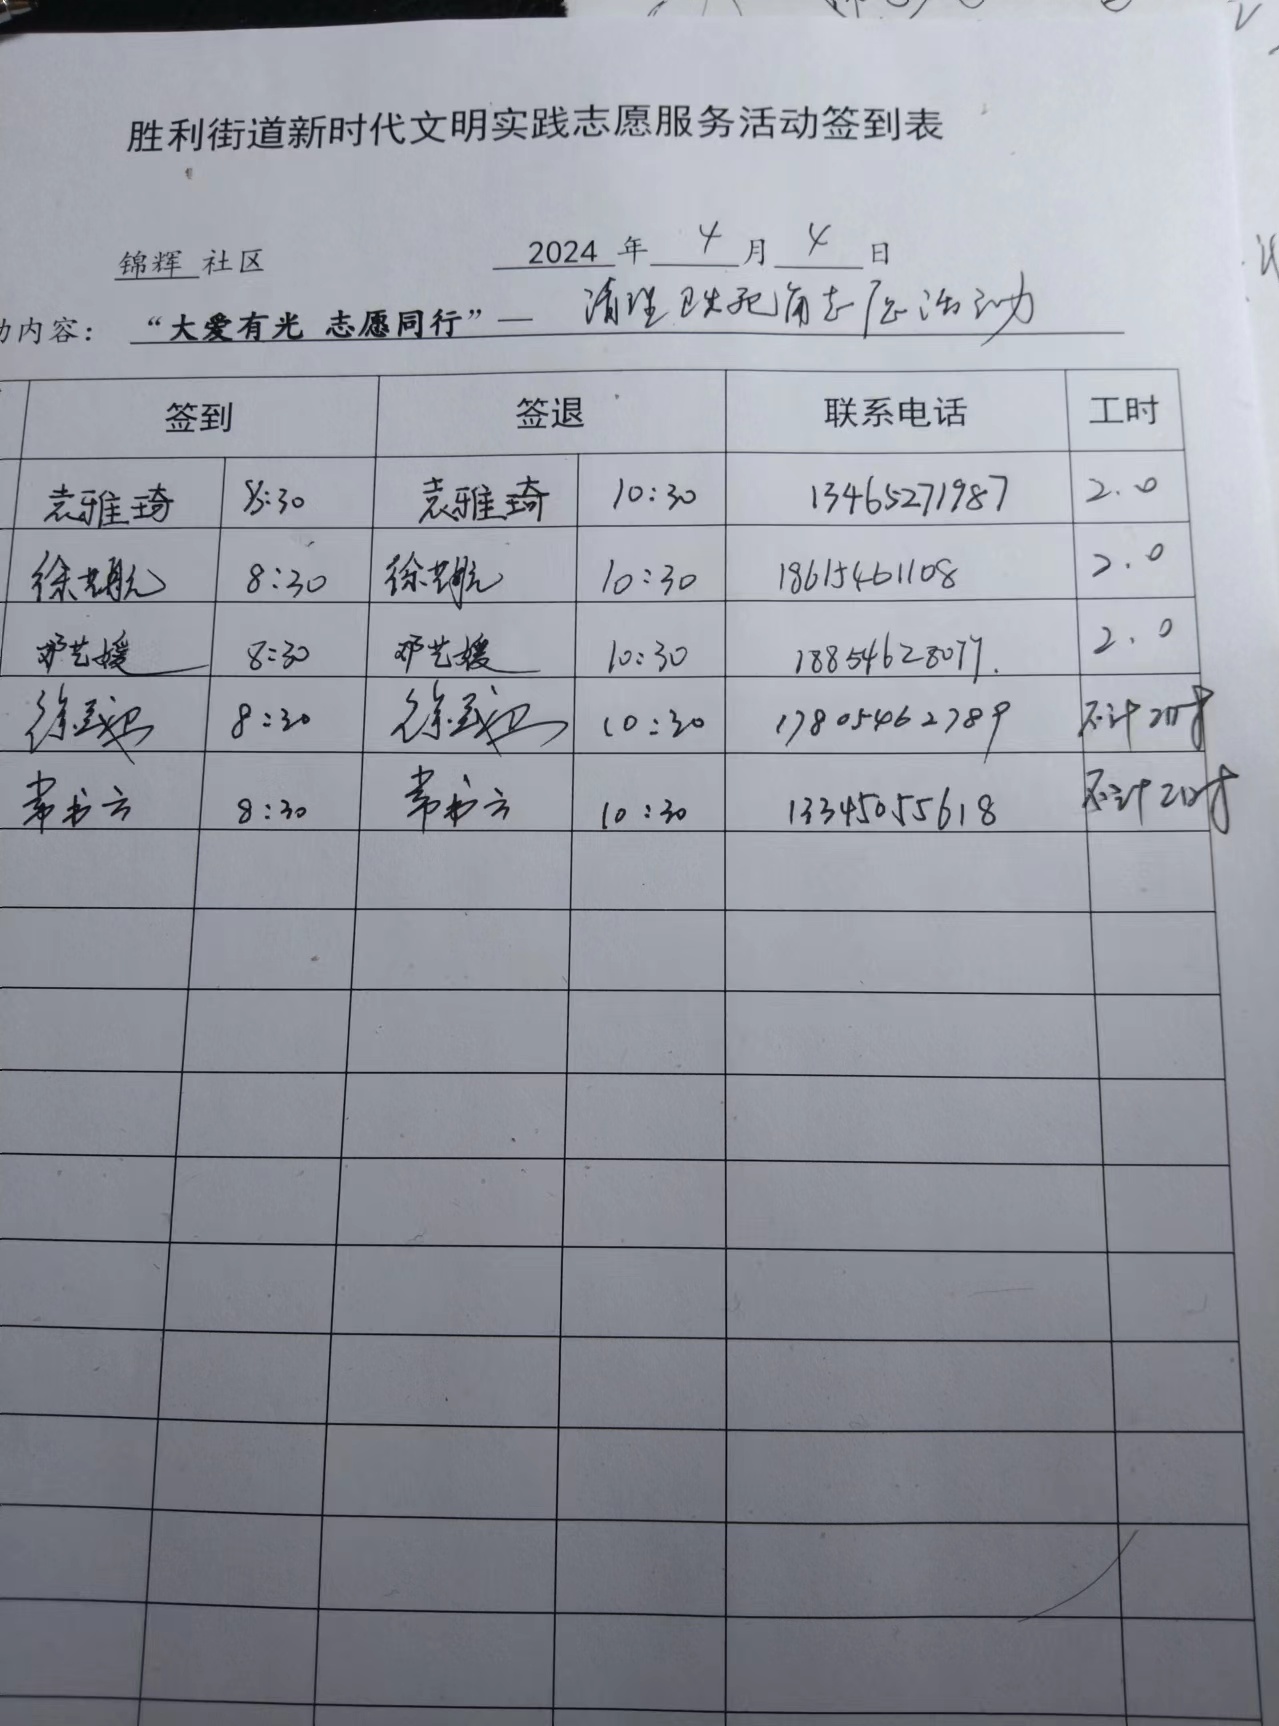 胜利街道新时代文明实践志愿服务活动签到表
锦辉 社区 2024 年 4 月 4 日
动内容: “大爱有光 志愿同行”— 清理卫生死角志愿活动
签到 签退 联系电话 工时
袁雅琦 8:30 袁雅琦 10:30 13465271987 2.0
徐艺航 8:30 徐艺航 10:30 18615461108 2.0
邓艺媛 8:30 邓艺媛 10:30 18854628077. 2.0
徐 8:30 徐 10:30 17805462789 不计工时
常书云 8:30 常书云 10:30 13345055618 不计工时